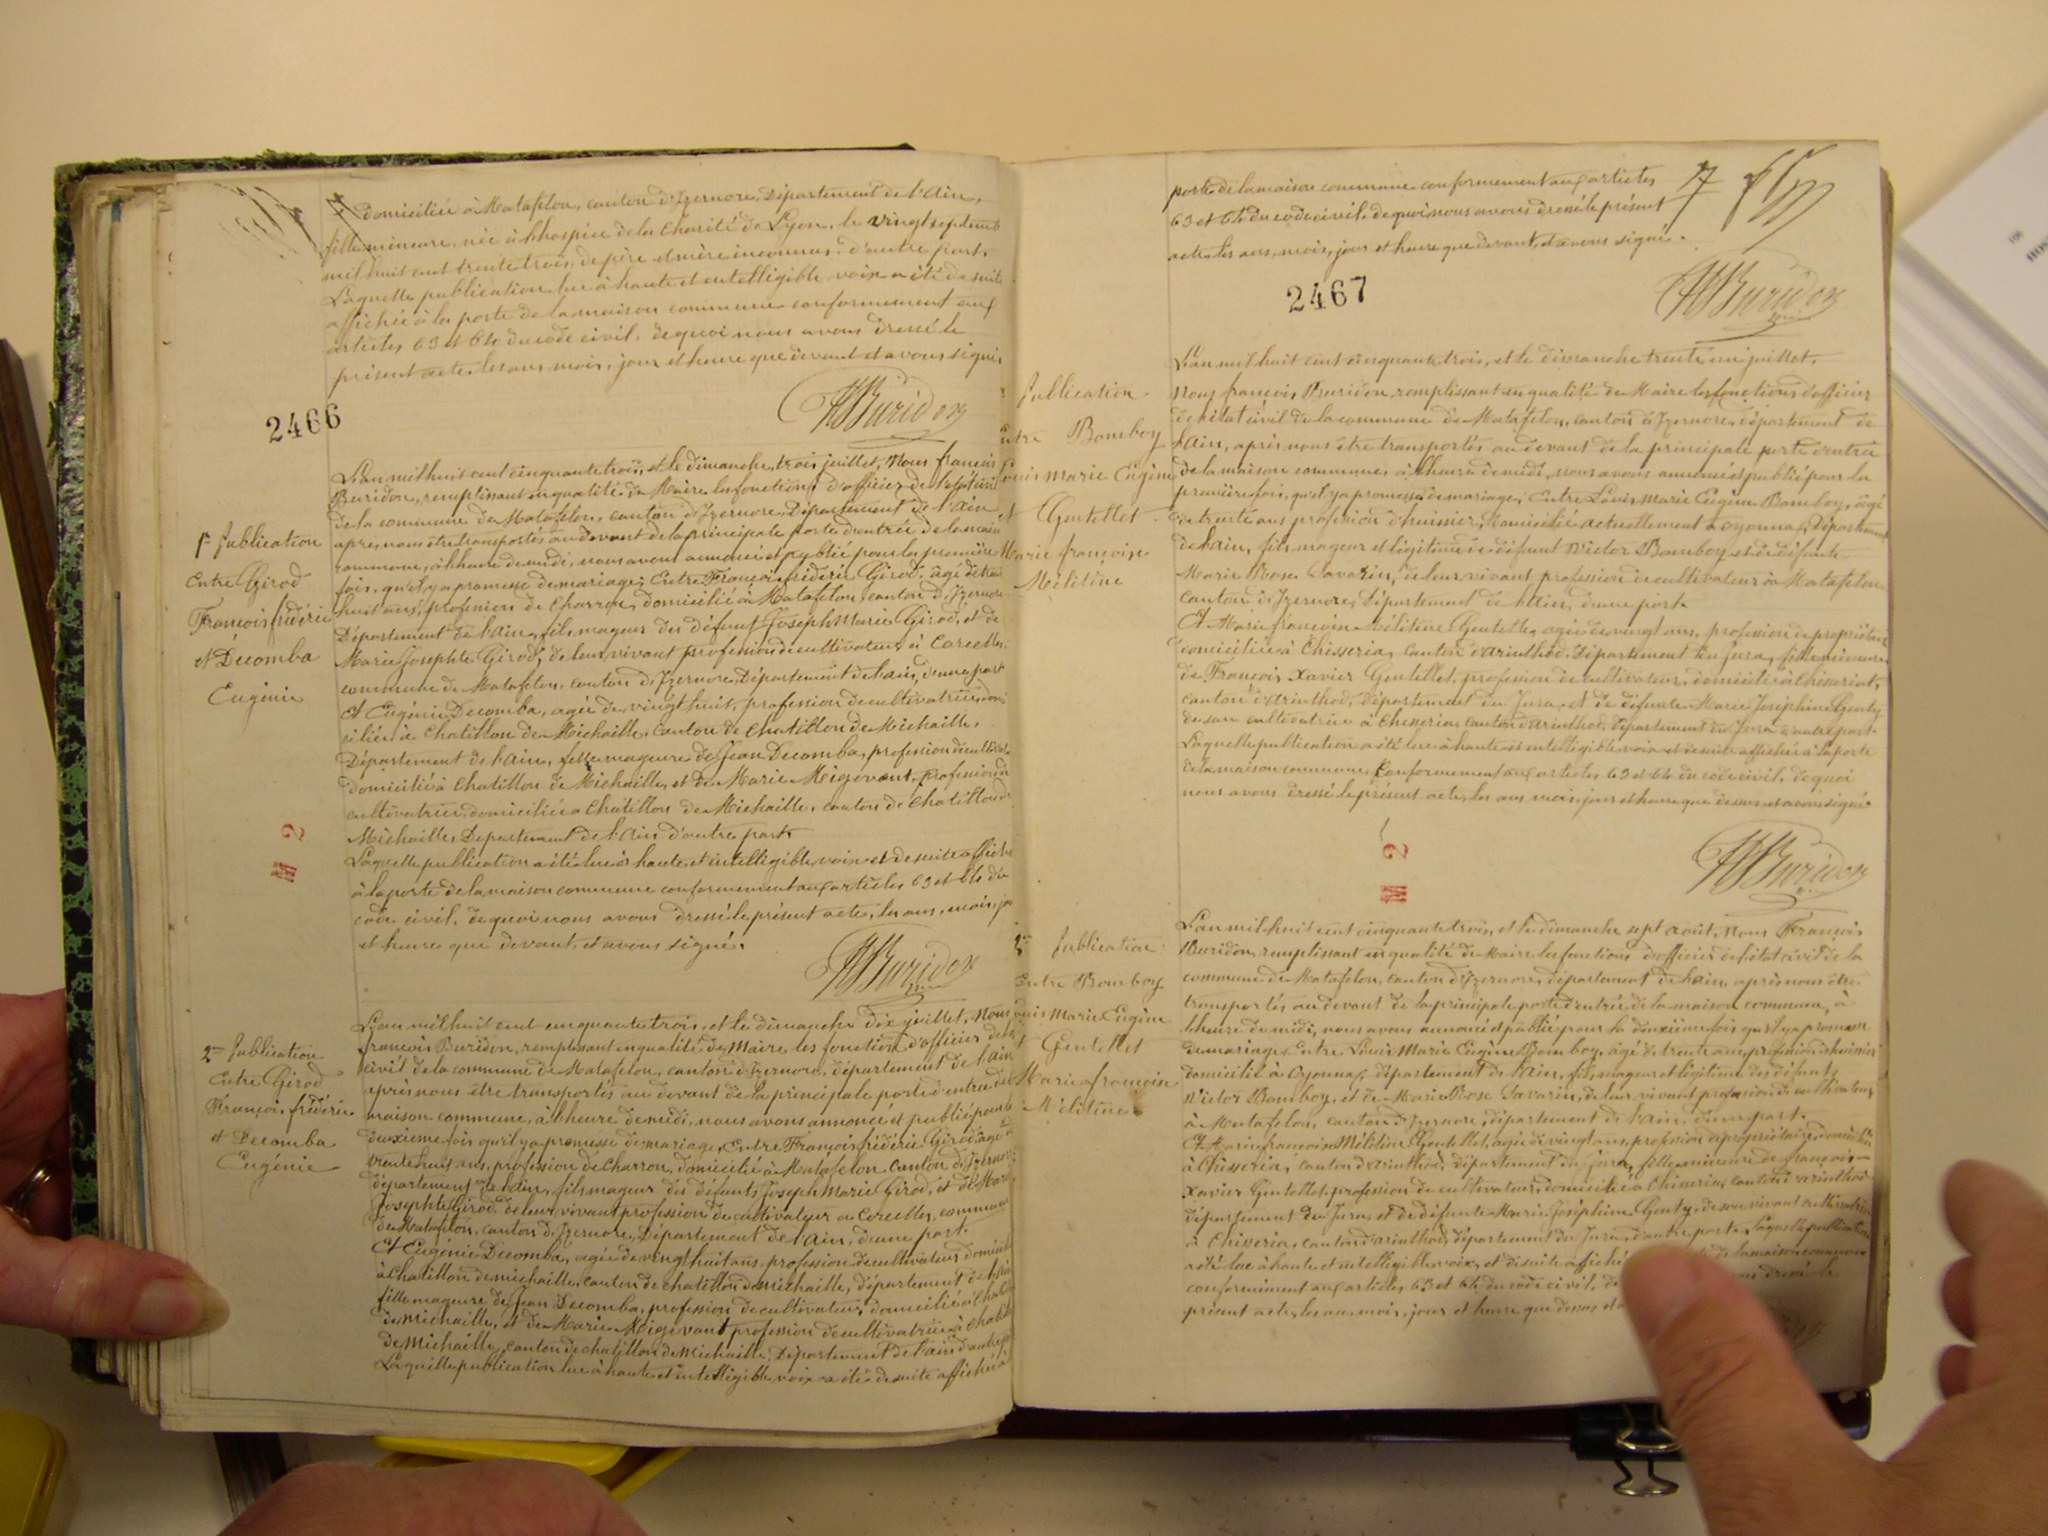 domiciliée à Matafelon, canton d'Izernore, Département de l'Ain,
fille mineure, née à l'hospice de la Charité de Lyon, le vingt septemb
mil huit cent trente trois, de père et mère inconnus, d'autre part,
Laquelle publication lue à haute et intelligible voix a été de suite
affichée à la porte de la maison commune conformement aux
articles 63 et 64 du code civil, de quoi nous avons dressé le
présent acte les ans, mois, jour et heure que devant et avons signé.
Buridon
2466
1re Publication
Entre Girod
François frédéric
et Decomba
Eugénie
L'an mil huit cent cinquante trois, et le dimanche, trois juillet, Nous françois
Buridon, remplissant en qualité de Maire les fonctions d'officier de l'état civil
de la commune de Matafelon, canton d'Izernore, Département de l'Ain
après nous être transportés au devant de la principale porte d'entrée de la maison
commune, à l'heure de midi, nous avons annoncé et publié pour la première
fois, qu'il y a promesse de mariage, Entre François frédéric Girod, âgé de trente
huit ans, profession de Charron, domicilié à Matafelon canton d'Izernore
Département de l'ain, fils majeur des défunts Joseph Marie Girod, et de
Marie Josephte Girod, de leur vivant profession de cultivateurs à Corcelles,
commune de Matafelon, canton d'Izernore, Département de l'ain, d'une part
Et Eugénie Decomba, agée de vingt huit, profession de cultivatrice, domi
ciliée à Chatillon de Michaille, canton de Chatillon de Michaille,
Département de l'ain, fille majeure de Jean Decomba, profession de cultivateur
domicilié à Chatillon de Michaille, et de Marie Migevant, profession de
cultivatrice, domiciliée à Chatillon de Michaille, canton de Chatillon de
Michaille, Département de l'Ain d'autre part,
Laquelle publication a été lue à haute, et intelligible voix et de suite affichée
à la porte de la maison commune conformement aux articles 63 et 64 du
code civil, de quoi nous avons dressé le présent acte, les ans, mois, jour
et heure que devant, et avons signé.
Buridon
M 2
2me Publication
Entre Girod
François frédéric
et Decomba
Eugénie
L'an mil huit cent cinquante trois, et le dimanche dix juillet, Nous
françois Buridon, remplissant en qualité de Maire les fonctions d'officier de l'état
civil de la commune de Matafelon, canton d'Izernore, département de l'ain
après nous être transportés au devant de la principale porte d'entrée de la
maison commune, à l'heure de midi, nous avons annoncé et publié pour la
deuxième fois qu'il y a promesse de mariage, Entre François frédéric Girod, agé de
trente huit ans, profession de Charron, domicilié à Matafelon canton d'Izernore,
département de l'ain, fils majeur des défunts Joseph Marie Girod, et de Marie
Josephte Girod, de leur vivant profession de cultivateur à Corcelles, commune
de Matafelon, canton d'Izernore, Département de l'ain, d'une part.
Et Eugénie Decomba, agée de vingt huit ans, profession de cultivateur domicil
à Chatillon de michaille, canton de chatillon de michaille, département de l'ain
fille majeure de Jean Decomba, profession de cultivateur, domicilié à Chatillon
de michaille, et de Marie Migevant profession de cultivatrice à chatillon
de Michaille, canton de chatillon de Michaille, Département de l'ain d'autre part
Laquelle publication lue à haute et intelligible voix a été de suite affichée à
porte de la maison commune conformement aux articles
63 et 64 du code civil, de quoi nous avons dressé le présent
acte les ans, mois, jour et heure que devant, et avons signé.
77
2467
Buridon
Publication
Entre Bomboy
Louis Marie Eugène
et Gentellet
Marie françoise
Mélitine
L'an mil huit cent cinquante trois, et le dimanche trente un juillet,
Nous françois Buridon, remplissant en qualité de Maire les fonctions d'officier
de l'état civil de la commune de Matafelon, canton d'Izernore, département de
l'Ain, après nous être transportés au devant de la principale porte d'entrée
de la maison commune, à l'heure de midi, nous avons annoncé et publié pour la
première fois, qu'il y a promesse de mariage, Entre Louis Marie Eugène Bomboy, âgé
de trente ans profession d'huissier, domicilié actuellement à oyonnax, Département
de l'ain, fils majeur et légitime de défunt Victor Bomboy, et de défunte
Marie Rose Savarin, de leur vivant profession de cultivateur à Matafelon
canton d'Izernore, Département de l'Ain, d'une part.
Et Marie françoise Mélitine Gentellet, agée de vingt ans, profession de propriétaire
domiciliée à Chisseria, canton d'arinthod, Département du jura, fille mineure
de François Xavier Gentellet, profession de cultivateur, domicilié à Chisseriat,
canton d'arinthod, Département du Jura, et de défunte Marie Joséphine Genty
de son cultivatrice à Chisseria, canton d'arinthod, département du Jura d'autre part
Laquelle publication a été lue à haute et intelligible voix et de suite affichée à la porte
de la maison commune, Conformement aux articles 63 et 64 du code civil, de quoi
nous avons dressé le présent acte, les ans mois, jour et heure que dessus et avons signé
Buridon
M 2
2me Publication
Entre Bomboy
Louis Marie Eugène
et Gentellet
Marie françoise
Mélitine
L'an mil huit cent cinquante trois, et le dimanche sept août, Nous François
Buridon, remplissant en qualité de Maire les fonctions d'officier de l'état civil de la
commune de Matafelon, canton d'Izernore, département de l'ain, après nous être
transportés au devant de la principale porte d'entrée, de la maison commune, à
l'heure de midi, nous avons annoncé et publié pour la deuxième fois qu'il y a promesse
de mariage, Entre Louis Marie Eugène Bomboy, âgé de trente ans, profession d'huissier
domicilié à Oyonnax, département de l'ain, fils, majeur et légitime des défunts
Victor Bomboy, et de Marie Rose Savarin, de leur vivant profession de cultivateurs
à Matafelon, canton d'Izernore, département de l'ain, d'une part.
Et Marie françoise Mélitine Gentellet, agée de vingt ans, profession de propriétaire, domiciliée
à Chisseria, canton d'arinthod, département du jura, fille mineure de françois
Xavier Gentellet, profession de cultivateur, domicilié à Chisseria, canton d'arinthod
département du Jura, et de défunte Marie Joséphine Genty, de son vivant cultivatrice
à Chisseria, canton d'arinthod, département du Jura, d'autre part. Laquelle publication
a été lue à haute et intelligible voix, et de suite affichée de la maison commune
conformement aux articles 63 et 64 du code civil, de dressé le
présent acte, les ans, mois, jour et heure que dessus et a